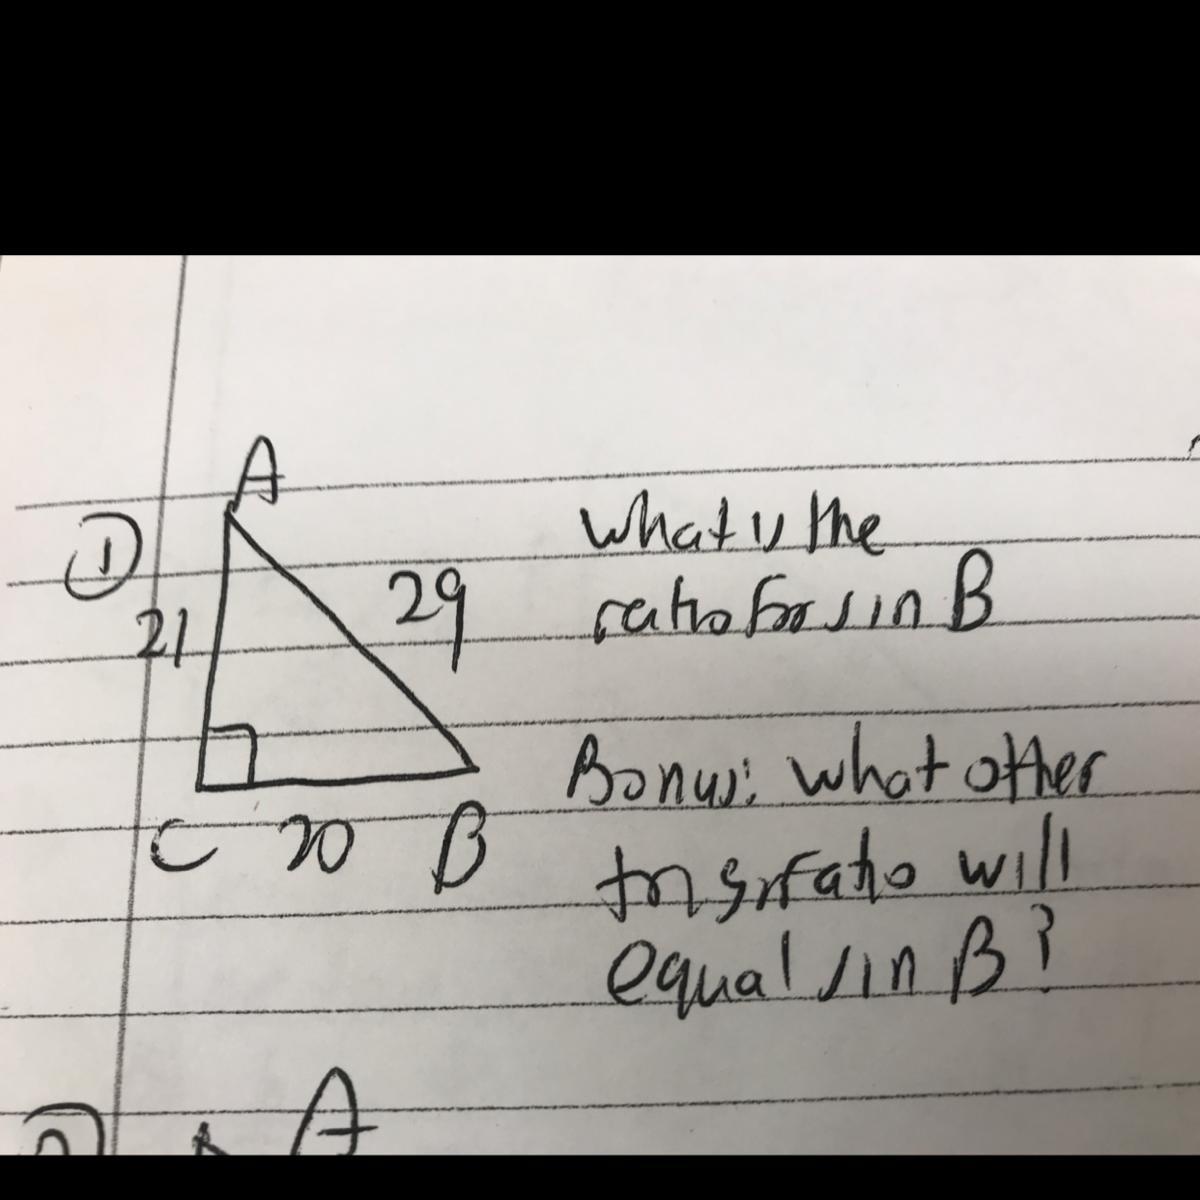 A
① 
21
29
C 20 B
What is the
ratio for sin B
Bonus: What other
trig ratio will
equal sin B?
A